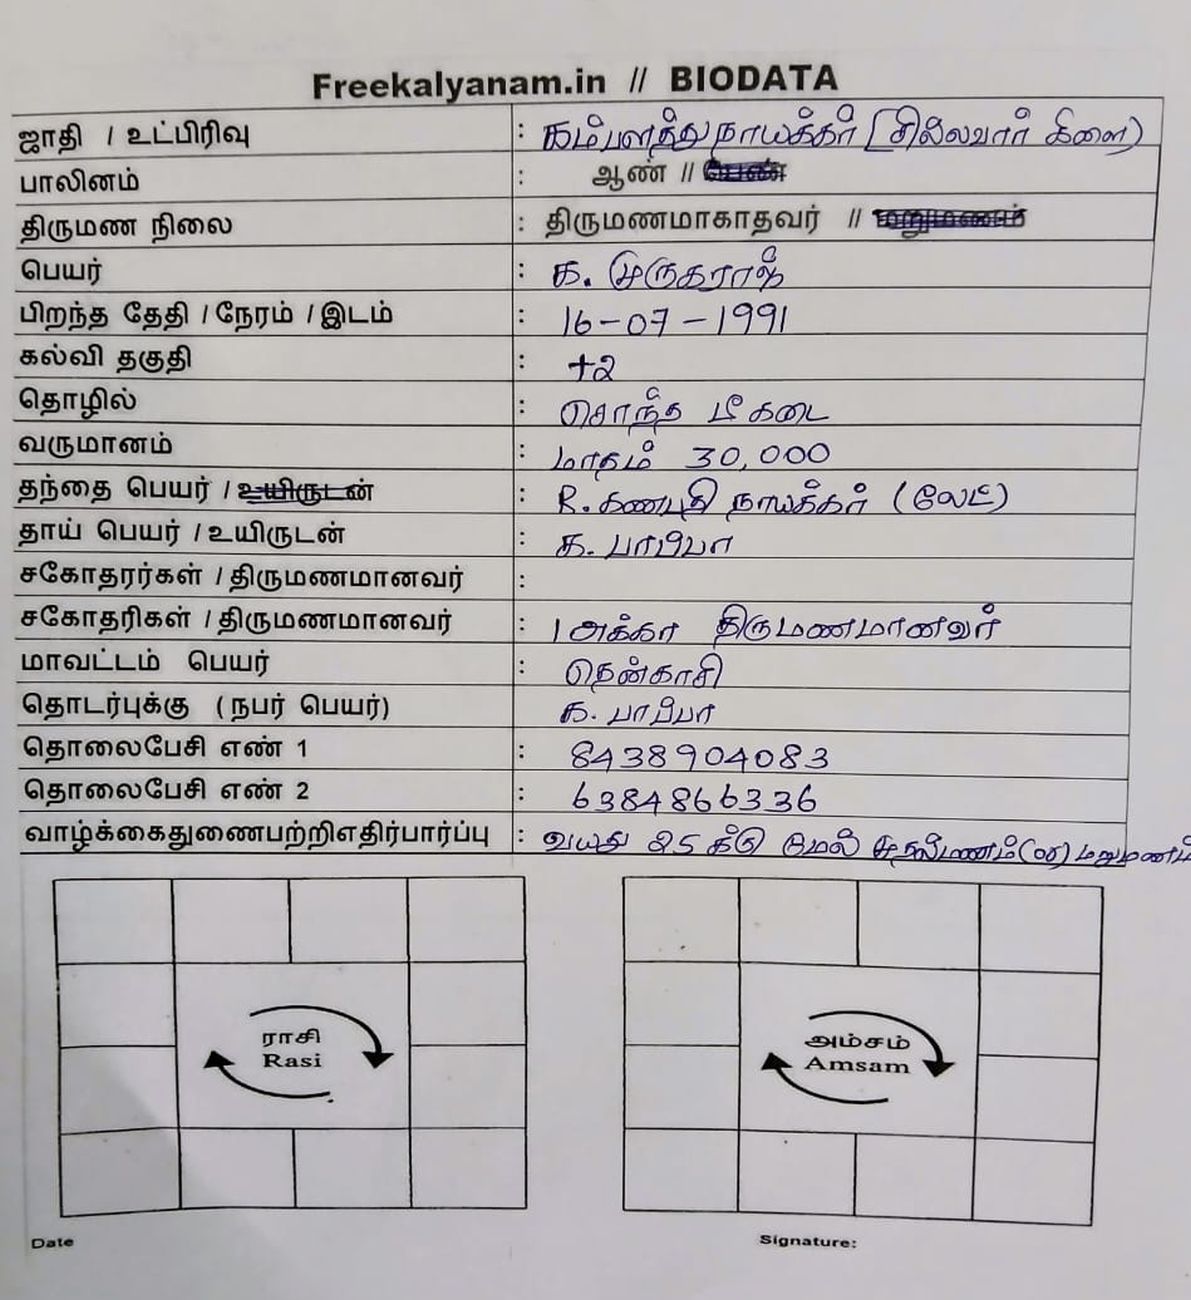 Freekalyanam.in // BIODATA
ஜாதி / உட்பிரிவு : கம்பளத்து நாயக்கர் (சில்லவார் கிளை)
பாலினம் : ஆண் // பெண்
திருமண நிலை : திருமணமாகாதவர் // மறுமணம்
பெயர் : க. முருகராஜ்
பிறந்த தேதி / நேரம் / இடம் : 16-07-1991
கல்வி தகுதி : +2
தொழில் : சொந்த டீ கடை
வருமானம் : மாதம் 30,000
தந்தை பெயர் / உயிருடன் : R. கணபதி நாயக்கர் (லேட்)
தாய் பெயர் / உயிருடன் : க. பாப்பா
சகோதரர்கள் / திருமணமானவர் :
சகோதரிகள் / திருமணமானவர் : 1 அக்கா திருமணமானவர்
மாவட்டம் பெயர் : தென்காசி
தொடர்புக்கு (நபர் பெயர்) : க. பாப்பா
தொலைபேசி எண் 1 : 8438904083
தொலைபேசி எண் 2 : 6384866336
வாழ்க்கைதுணைபற்றிஎதிர்பார்ப்பு : வயது 25 க்கு மேல் முதல்மணம் (or) மறுமணம்
ராசி
Rasi
அம்சம்
Amsam
Date
Signature: